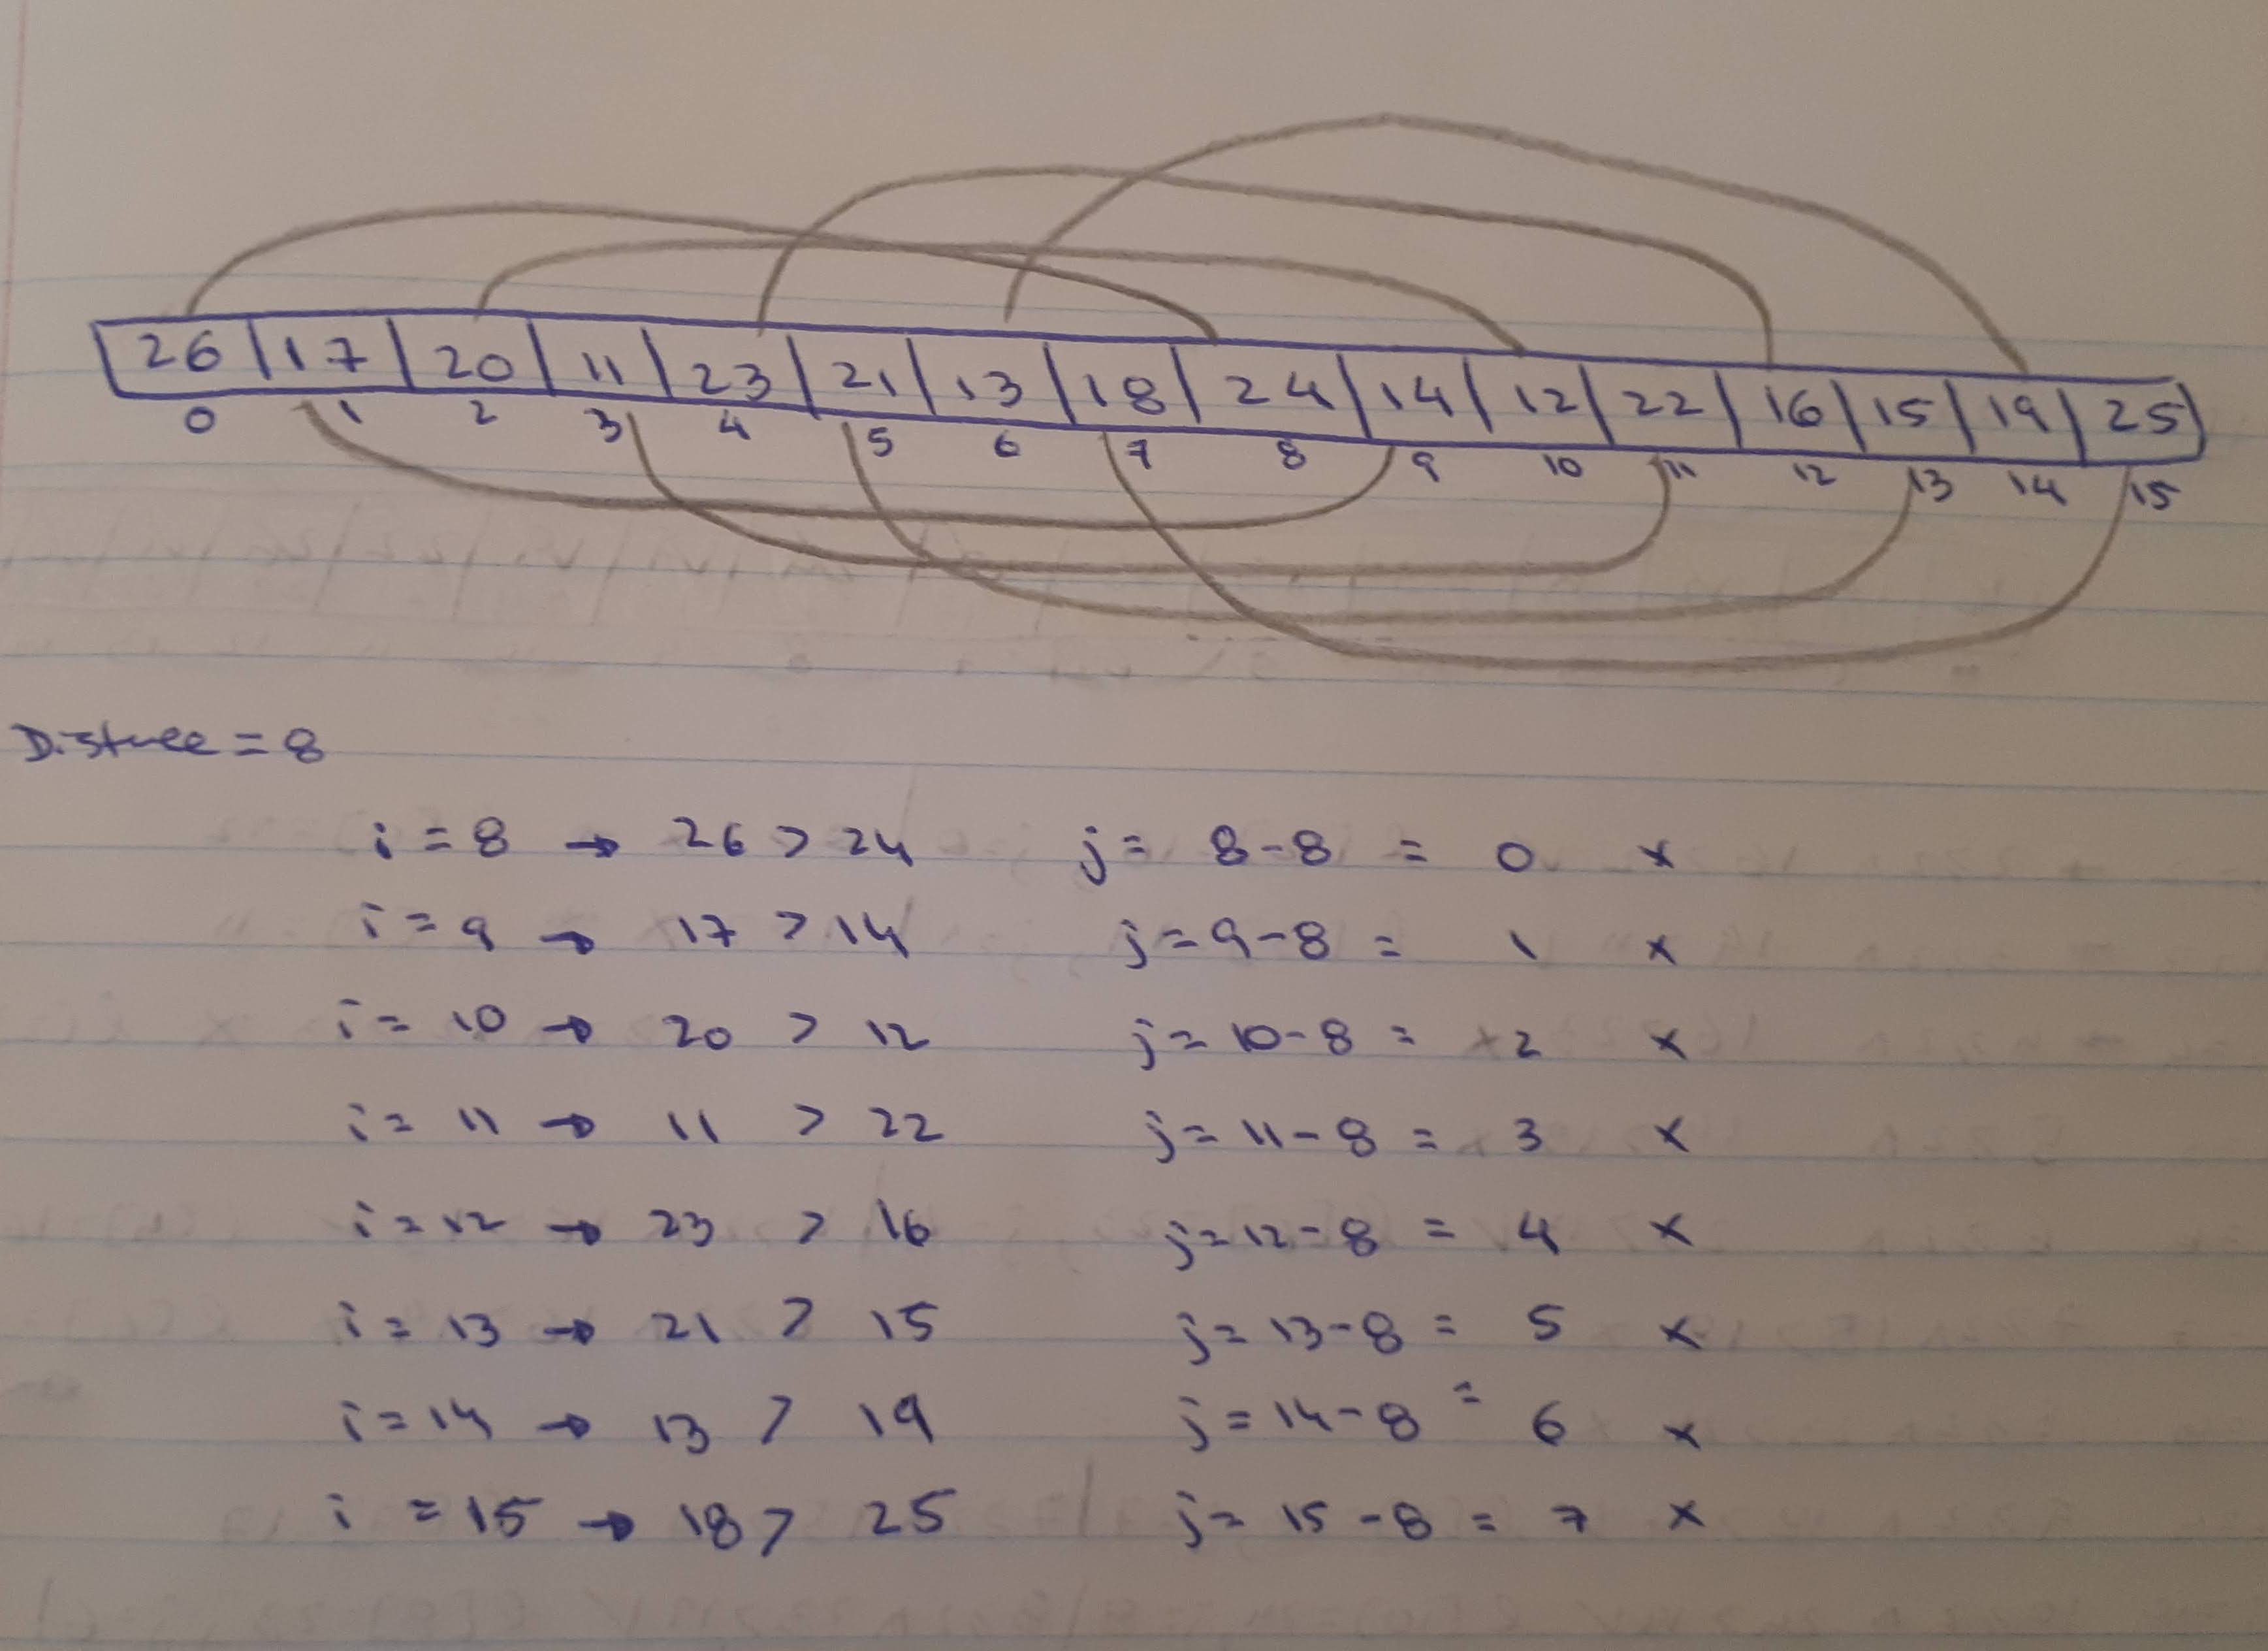 26 | 17 | 20 | 11 | 23 | 21 | 13 | 18 | 24 | 14 | 12 | 22 | 16 | 15 | 19 | 25
0 1 2 3 4 5 6 7 8 9 10 11 12 13 14 15
Distnce = 8
i = 8 → 26 > 24 j = 8-8 = 0 x
i = 9 → 17 > 14 j = 9-8 = 1 x
i = 10 → 20 > 12 j = 10-8 = 2 x
i = 11 → 11 > 22 j = 11-8 = 3 x
i = 12 → 23 > 16 j = 12-8 = 4 x
i = 13 → 21 > 15 j = 13-8 = 5 x
i = 14 → 13 > 19 j = 14-8 = 6 x
i = 15 → 18 > 25 j = 15-8 = 7 x